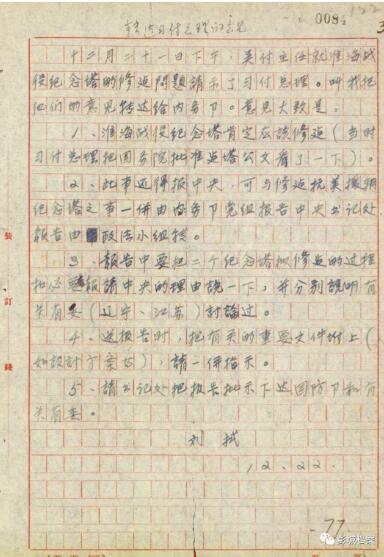 0084
十二月二十一日下午，关付主任就淮海战
役纪念塔的修建问题请示了习付总理。叫我把
他们的意见转达给内务卩。意见大致是：
1、淮海战役纪念塔肯定应该修建（当时
习付总理把国务院批准建塔公文看了一下）。
2、此事还得报中央，可与修建抗美援朝
纪念塔之事一併由内务卩党组报告中央书记处
报告由政法小组转。
3、报告中要把二个纪念塔拟修建的过程
和必报请中央的理由说一下，并分别说明有
关省委（辽宁、江苏）讨论过。
4、送报告时，把有关的重要文件附上（
如设计方案等），請一併指示。
5、請书记处把报告批示下达国防卩和有
关省委。
刘拭
12.22.
-77
装
訂
綫
彭城档案